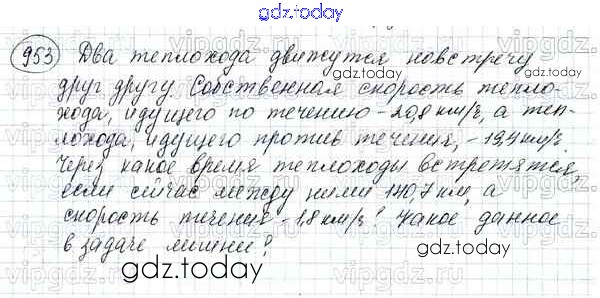 gdz.today
953 Два теплохода движутся навстречу
друг другу. Собственная скорость тепло-
хода, идущего по течению - 20,8 км/ч, а теп-
лохода, идущего против течения, - 19,4 км/ч.
Через какое время теплоходы встретятся,
если сейчас между ними 140,7 км, а
скорость течения - 1,8 км/ч? Какое данное
в задаче лишнее?
gdz.today
gdz.today
gdz.today
gdz.today